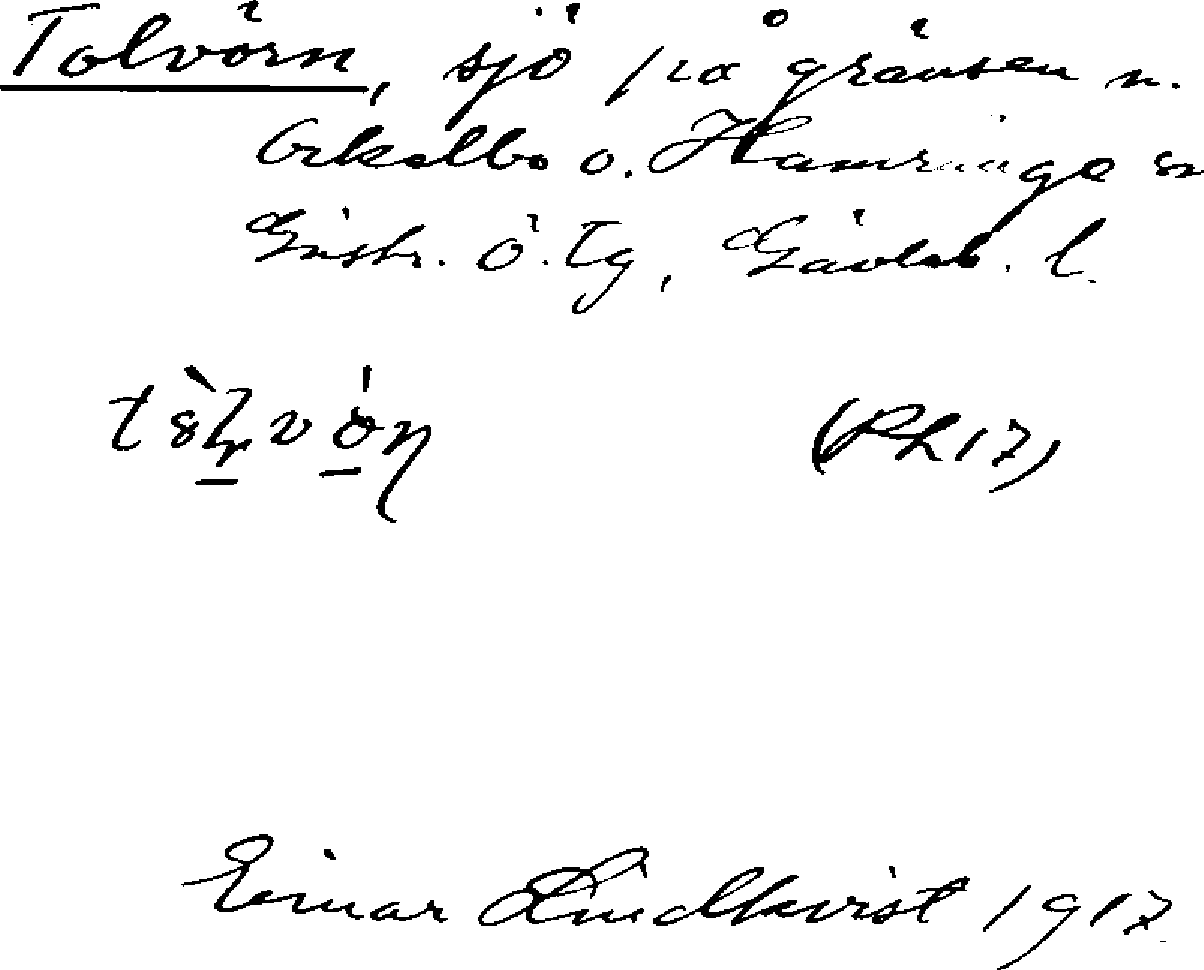 Tolvörn, sjö på gränsen m.
Ockelbo o. Hamrånge sn
Gästr. Ö. Tg, Gävleb. l.
(Ph 17)
Einar Lindkvist 1917